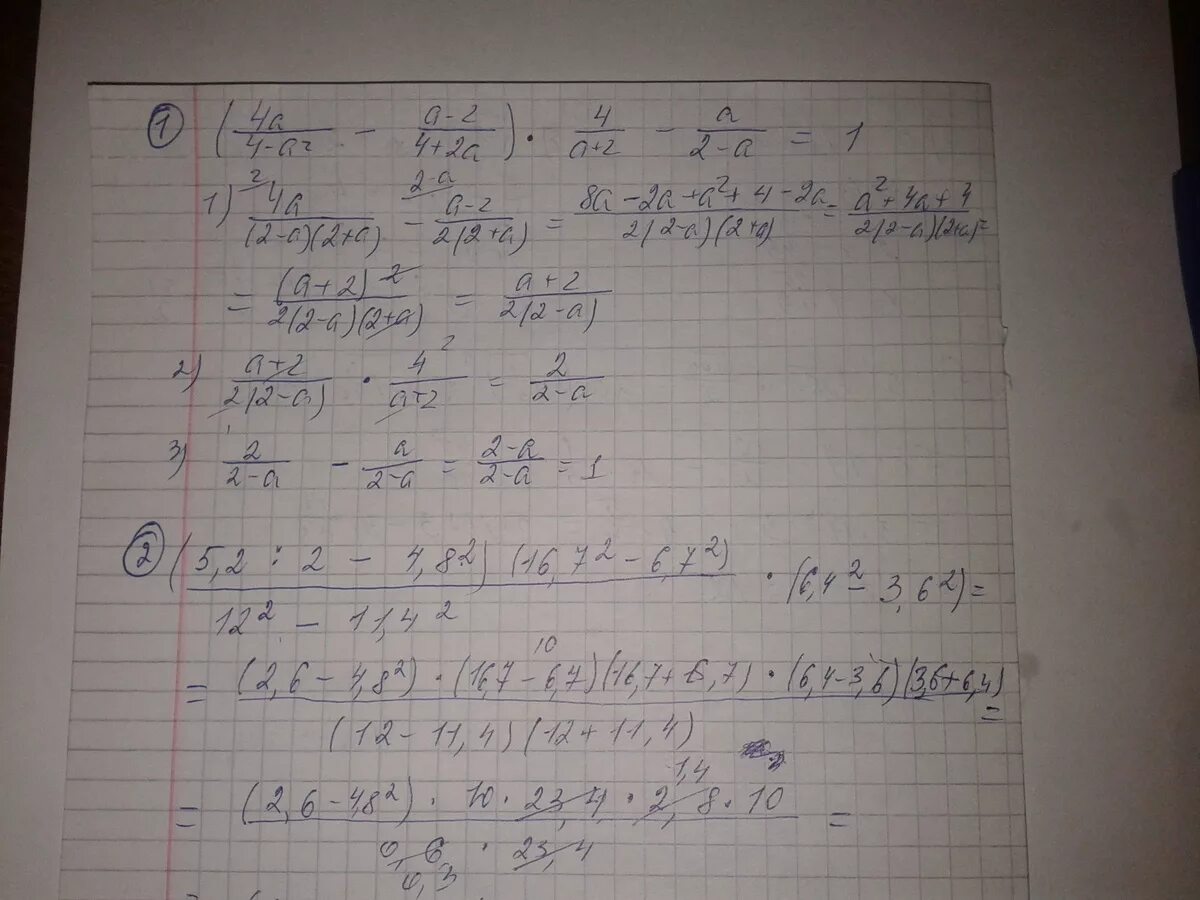 ① (4a/(4-a²) - (a-2)/(4+2a)) · 4/(a+2) - a/(2-a) = 1
1) ²4a/((2-a)(2+a)) - ²⁻ᵃ(a-2)/(2(2+a)) = (8a-2a+a²+4-2a)/(2(2-a)(2+a)) = (a²+4a+4)/(2(2-a)(2+a)) =
= (a+2)²/(2(2-a)(2+a)) = (a+2)/(2(2-a))
2) (a+2)/(2(2-a)) · 4/(a+2) = 2/(2-a)
3) 2/(2-a) - a/(2-a) = (2-a)/(2-a) = 1
② (5,2 : 2 - 4,8²)(16,7² - 6,7²)/(12² - 11,4²) · (6,4² - 3,6²) =
= (2,6 - 4,8²) · (16,7 - 6,7)(16,7 + 6,7) · (6,4 - 3,6)(3,6 + 6,4)/((12 - 11,4)(12 + 11,4)) =
= (2,6 - 4,8²) · 10 · 23,4 · 2,8 · 10/(0,6 · 23,4) =